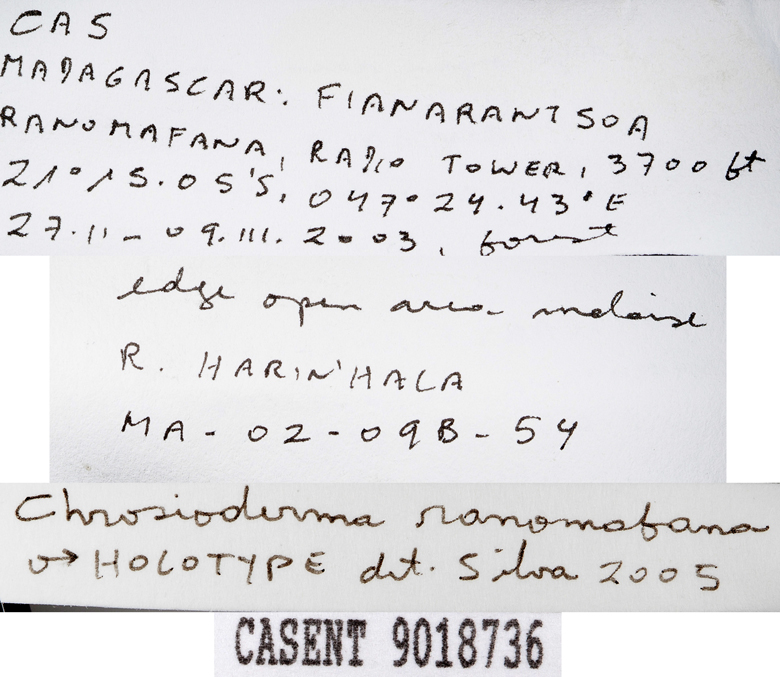 CAS
MADAGASCAR: FIANARANTSOA
RANOMAFANA, RADIO TOWER, 3700 ft
21°15.05'S, 047°24.43'E
27.II – 09.III.2003, forest
edge open area malaise
R. HARIN'HALA
MA-02-09B-54
Chrosioderma ranomafana
♂→ HOLOTYPE det. Silva 2005
CASENT 9018736